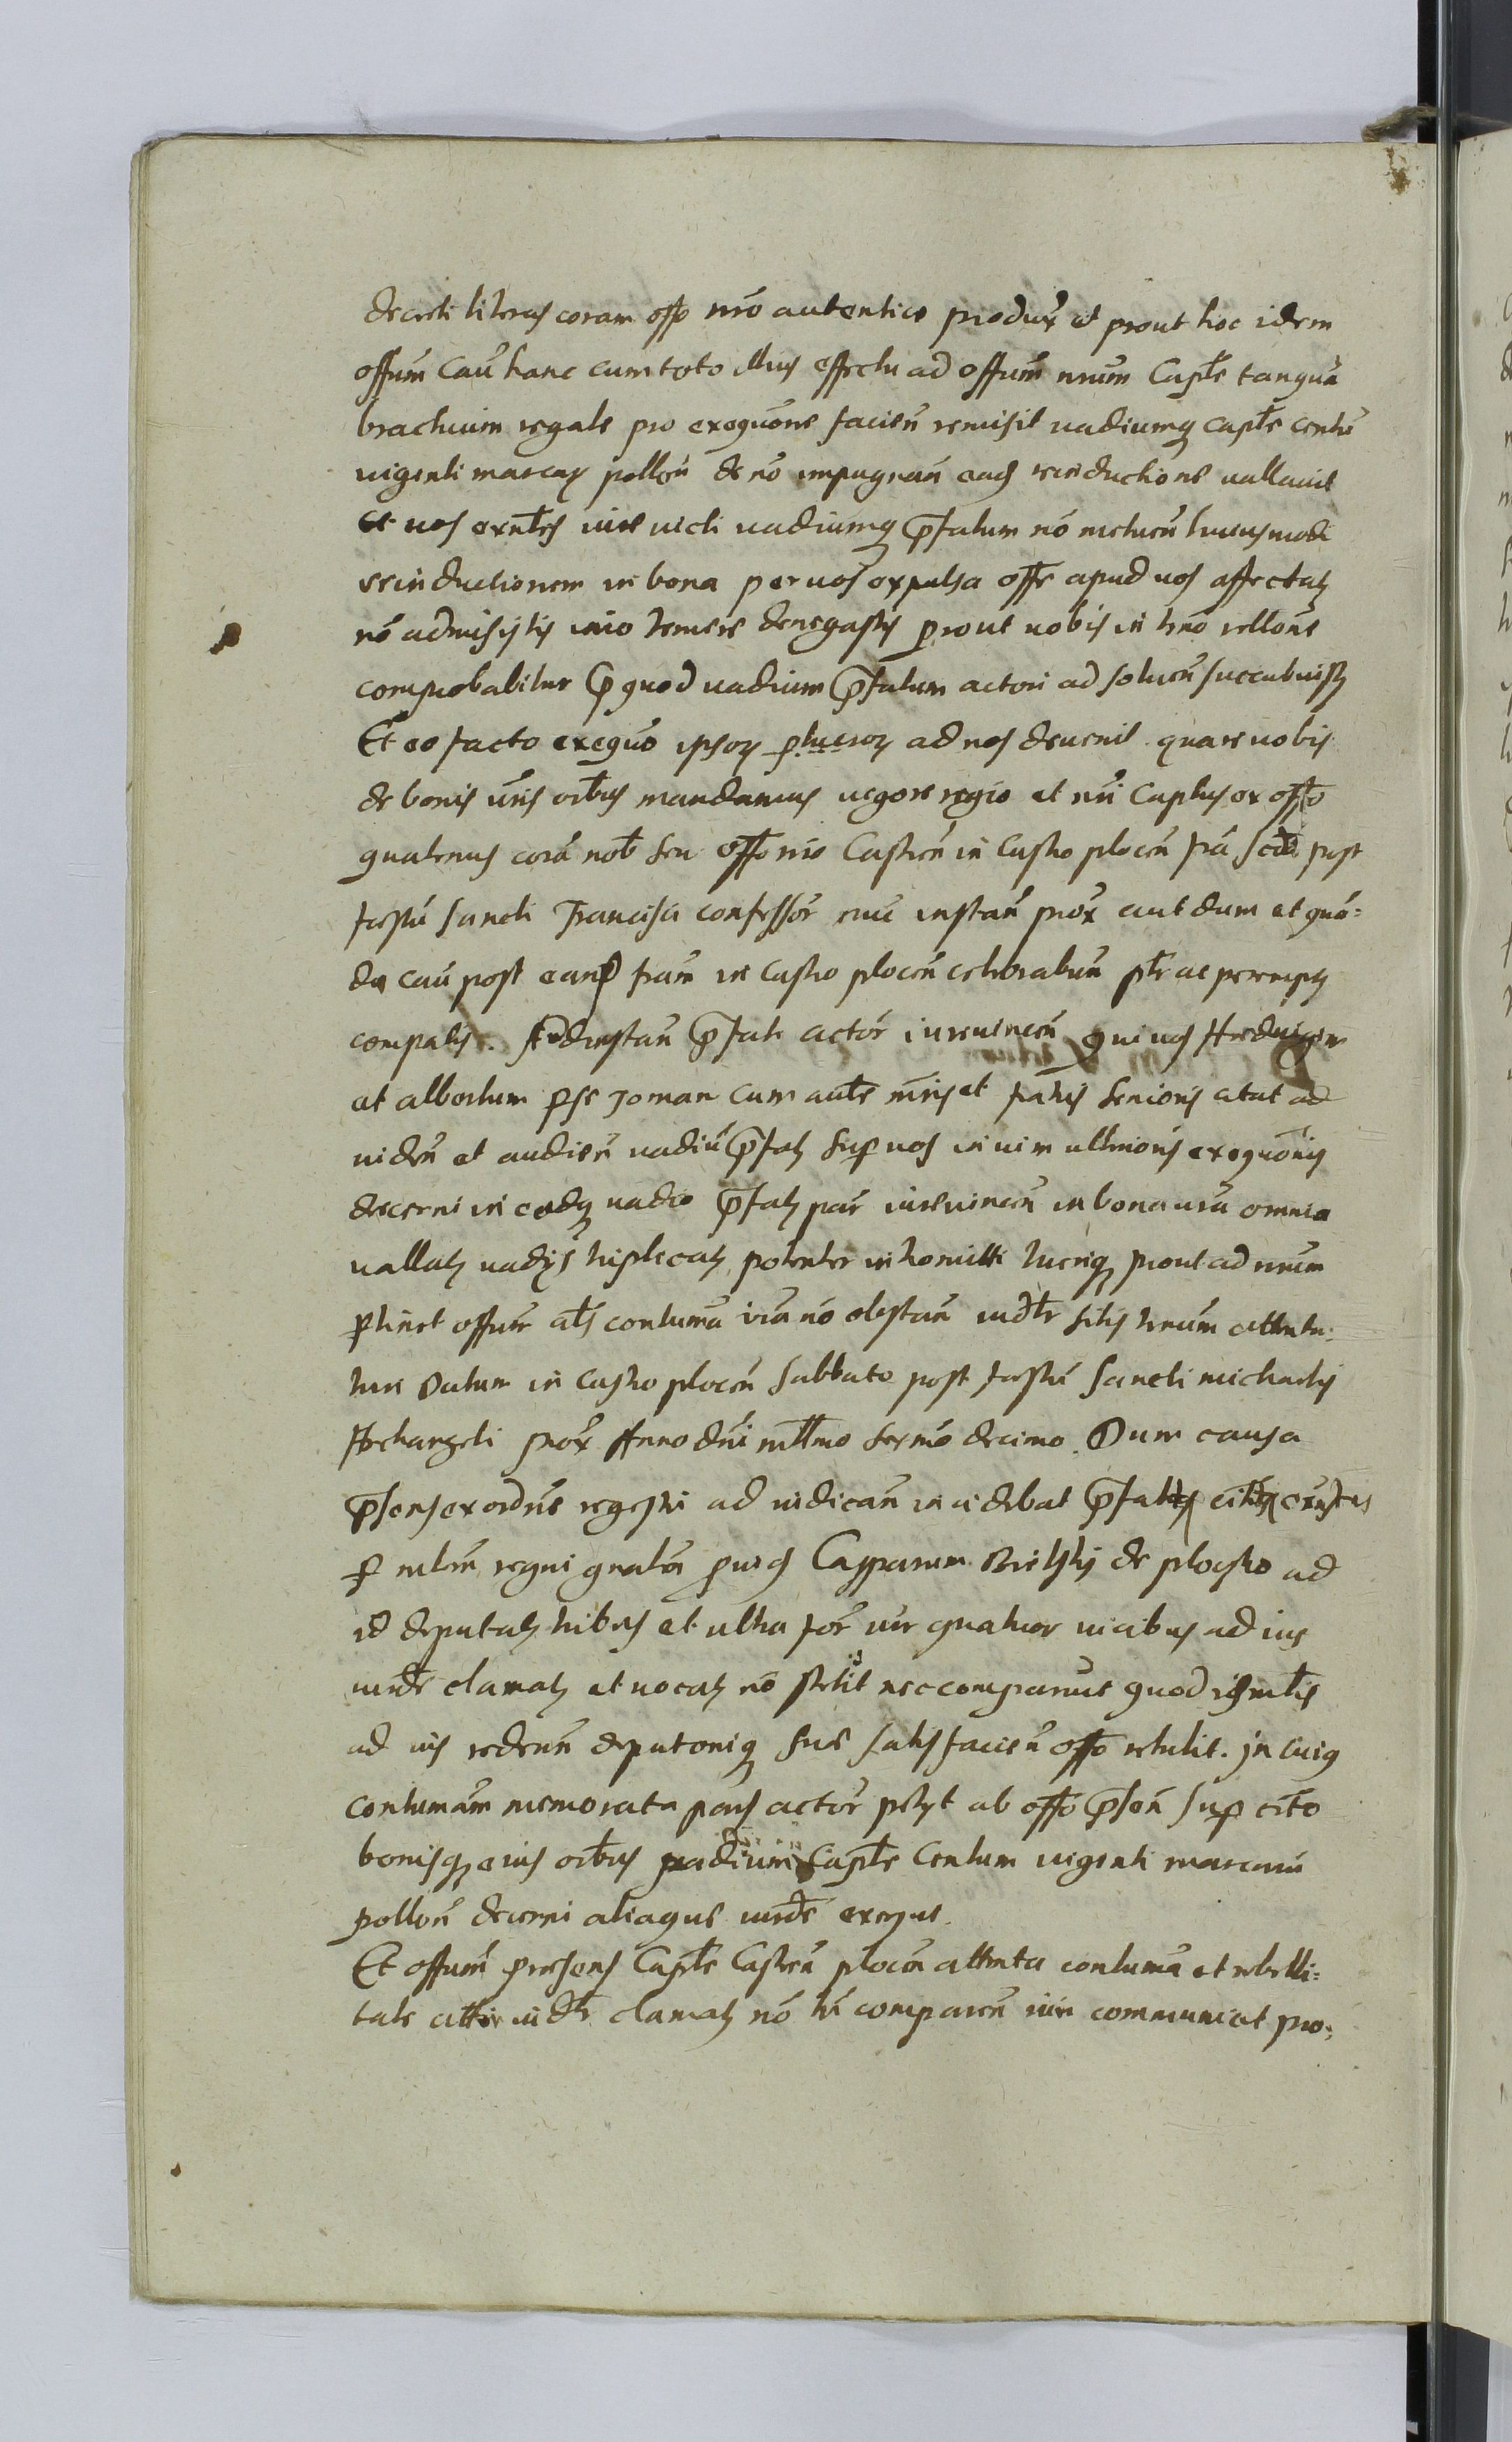 decreti literas coram offo nro autentice produx et prout hoc idem
offum cau hanc cum toto illius effectu ad offum nrum Caple tanqua
brachium regale pro exequone facien remisit vadiumq caple centu
viginti marcar pollon de no impugnan ead reinductione vallavit
Et vos exntes iure victi vadiumq pfatum no metuen huiusmodi
reinductionem in bona per vos expulsa offe apud vos affectat
no admisistis imo temere denegastis prout vobis in trno rellone
comprobabitur p quod vadium pfatum actori ad soluen succubuist
Et eo facto exequo ipsor plueror ad nos devenit quare vobis
de bonis vris oibus mandamus vigore regio et nri Captus ex offo
quatenus cora nob seu offo nro Castren in Castro plocen fra scda post
festu sancti Francisci confessor nunc instan prox aut dum et qua=
do cau post eand fram in Castro plocen celebrabun ptr ac peremp
compatis. Ad instan pfate actor iurevincen qui vos Hedvigem
et albertum p se Joman cum aute mris et fratris senioris citat ad
viden et audien vadiu pfat sup vos in vim ulterioris exequonis
decerni in eodq vadio pfat par iurevincen in bona vra omnia
vallat vadys triplicat potenter intromitti tueriq prout ad nrum
ptinet offum als contuma vra no obstan iudlr sitis trnum attentu=
turi Datum in Castro plocen sabbato post festu Sancti michaelis
Archangeli prox Anno dni mllmo sexmo decimo. Dum causa
psens ex ordine regestri ad iudican incidebat pfat cit exntes
p mlrem regni gnalem pvid Casparum Bielski de plocsko ad
id deputat tribus et ultra for iur quatuor vicibus ad ius
iurde clamat et vocat no stetit nec comparuit quod id mlis
ad ius redeun deputoniq sue satisfacien offo retulit. In cuiq
contumam memorata pars actor petyt ab offo psen sup cito
bonisq eius oibus vadium Caple Centum viginti marcaru
pollon decerni aliaque iurde exequi.
Et offum presens Caple Castren plocen attenta contuma et rebelli=
tate citti iudlr clamat no tn comparen iuri communi et pro=